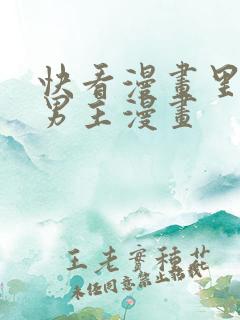 快看漫畫里
男主漫畫
王老實種花
未任同意禁止転載